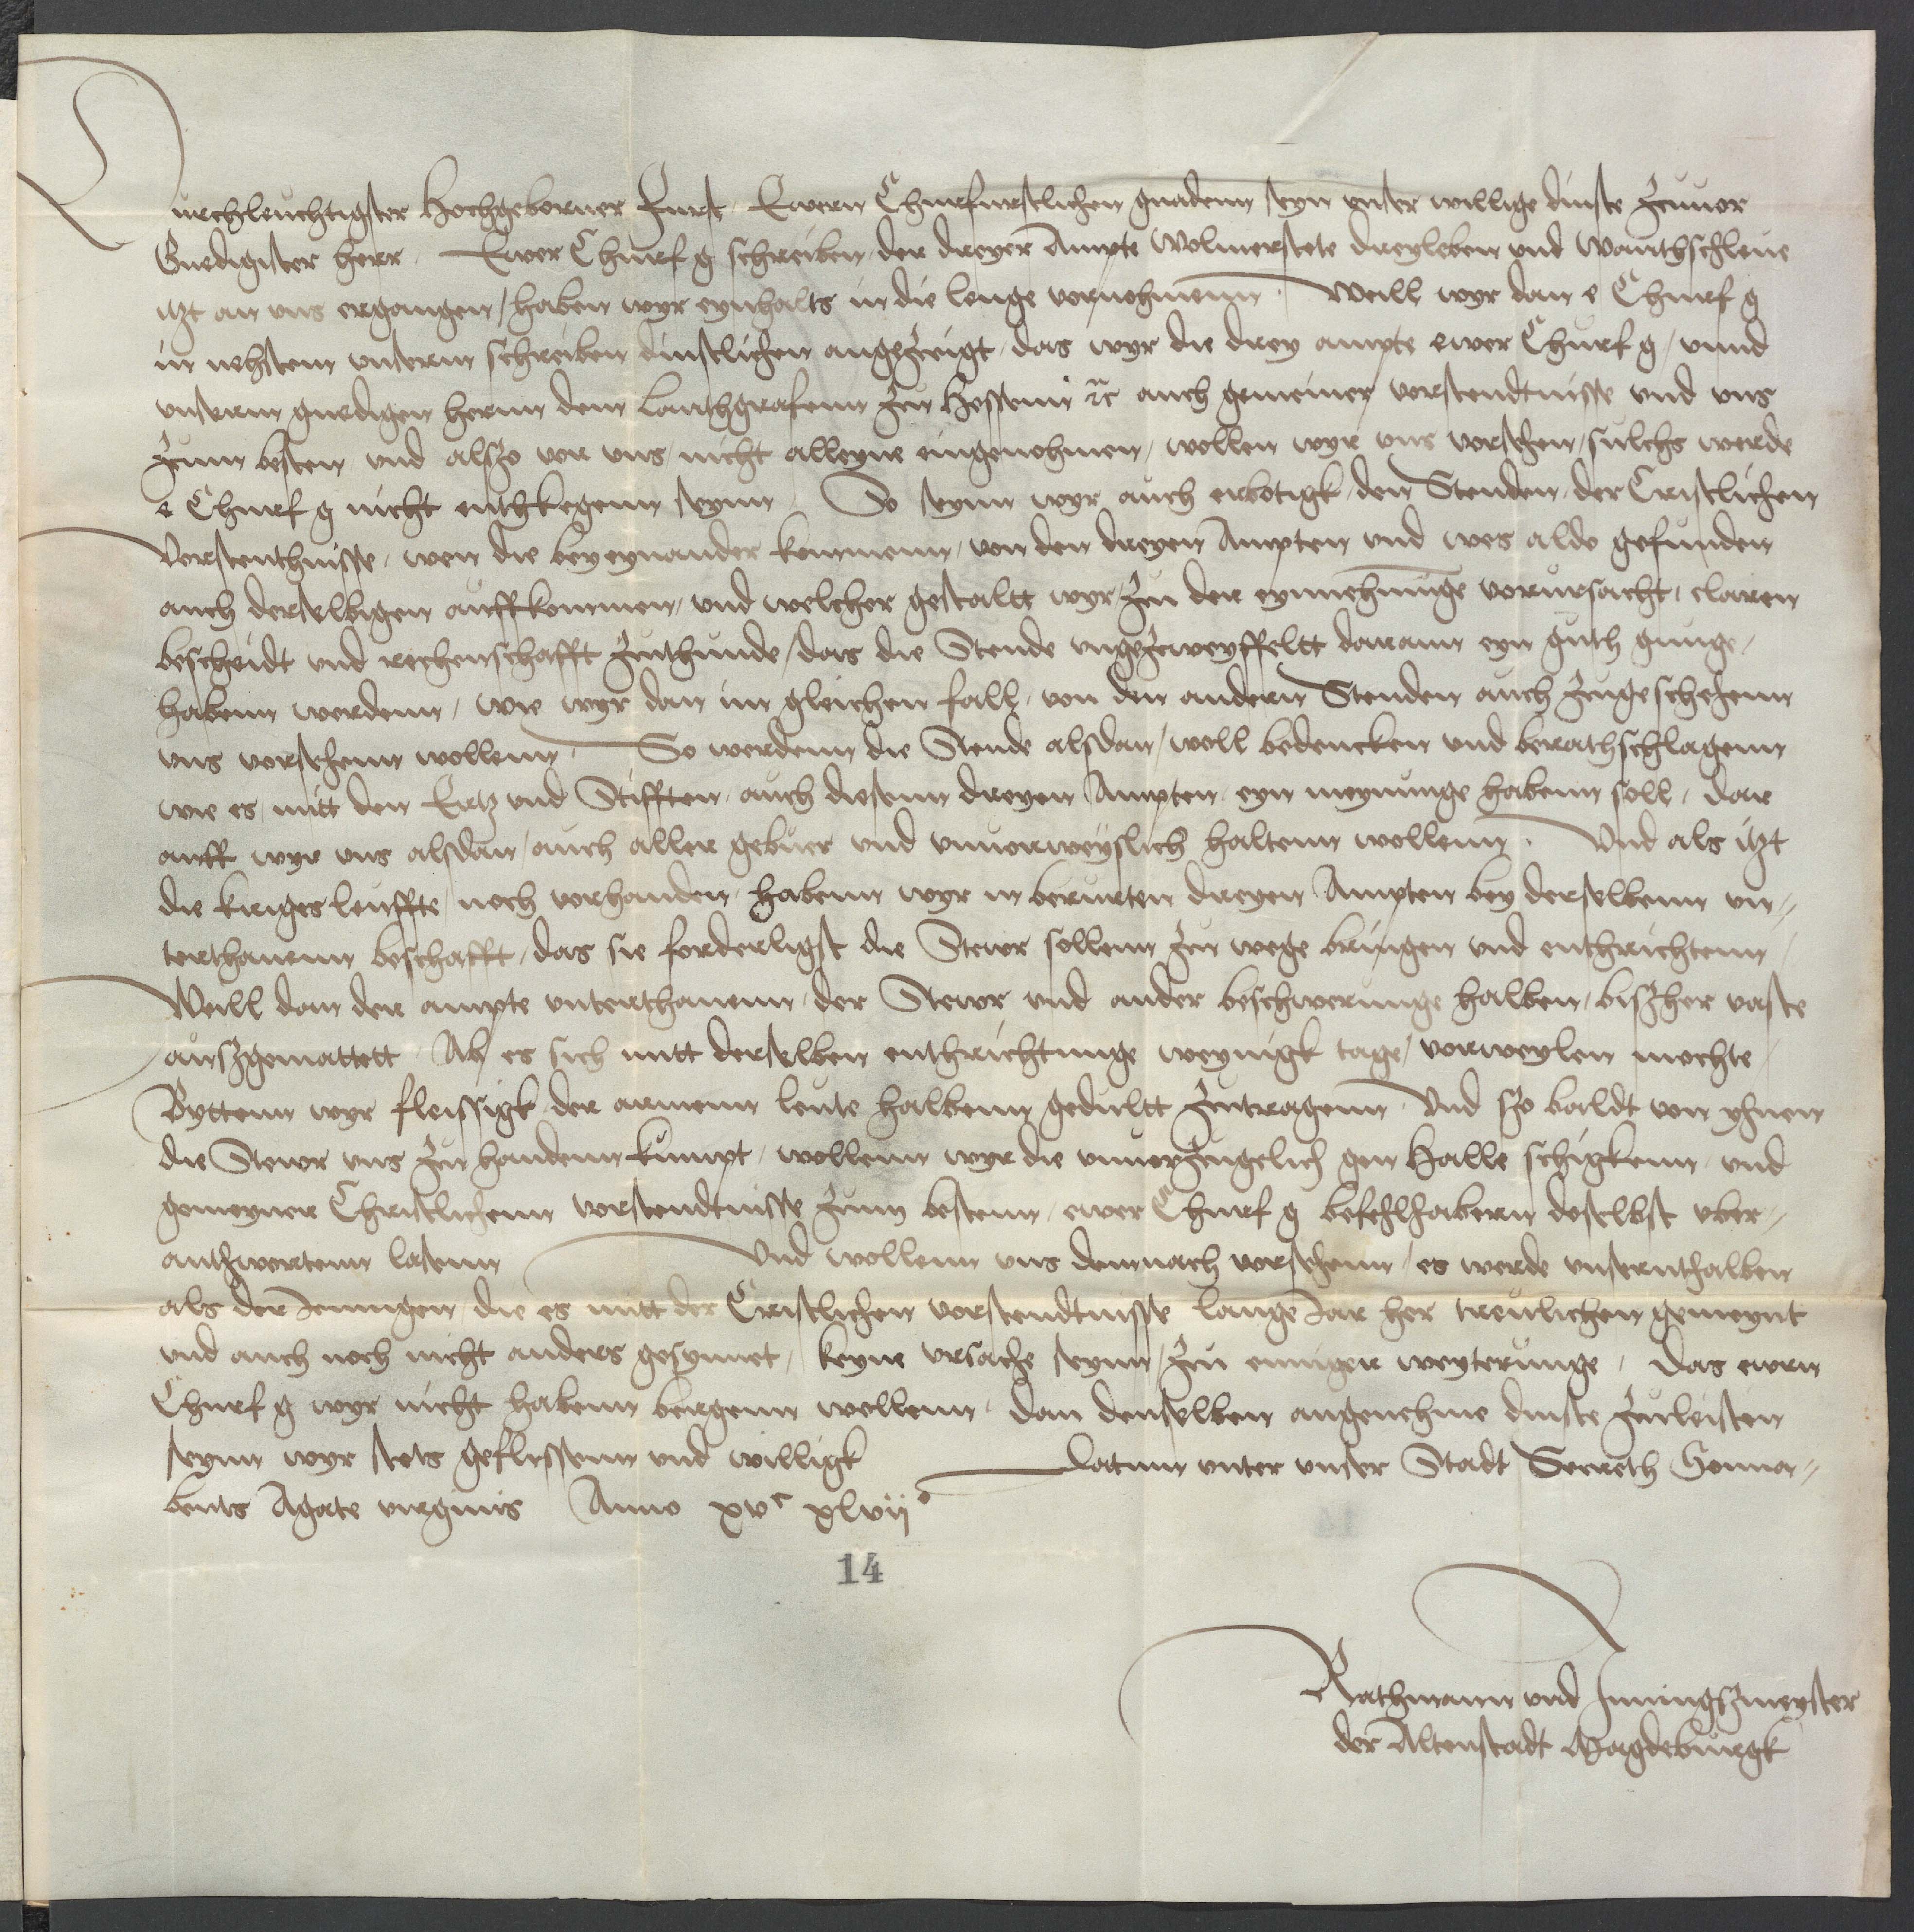 Durchleuchtigster Hochgeborner Furst Ewern Churfurstlichen gnadenn seyn unser willige dinste zuuor
Gnedigster herr Ewer Churf g schreiben der dreyer Ampte Wolmerstete dreyleben und Wanthschleue
itzt an uns ergangen / haben wyr eynhalts in die lenge vornohmenn Weill wyr dan e Churf g
in nehstem unserm schreiben dinstlichen angezceigt das wyr die drey ampte ewer Churf g / vnnd
unserm gnedigen hernn dem Lanthgrafenn zcu Hessenn ꝛc auch gemeiner vorstendtnisse und uns
zcum besten und alszo vor uns / nicht alleyne eingenohmen / wollen wyr uns vorsehen / sulchs werde
e Churf g nicht enthkegenn seynn So seynn wyr auch erbotigk den Stenden der Cristlichen
Vorstenthnisse / wen die bey eynander kommenn / von den dreyen Ampten und wes aldo gefunden
auch derselbigen auffkommen / und welcher gestaltt wyr zcu der eynnehmunge vorursacht / claren
bescheidt und rechenschafft zcuthunde / das die Stende ungezcweyffeltt darann eyn guth gnuge /
habenn werdenn / wie wyr dan im gleichen fall / von den andern Stenden auch zcugeschehenn
uns vorsehenn wollenn So werdenn die Stende alsdan / woll bedencken und berathschlagenn
wie es mitt den Ertz und Stifften / auch diesenn dreyen Ampten eyn meynunge habenn soll / dar
auff wyr uns alsdan / auch aller gebuer und unuorweyslich haltenn wollenn Und als itzt
die kriges leuffte / noch vorhanden habenn wyr in berurten dreyen Ampten bey derselbenn un=
terthanenn beschafft / das sie forderligst die Stewr sollenn zcu wege bringen und enthrichtenn /
Weill dan der ampte unterthanenn / der Stewr und ander beschwerunge halben / biszher vaste
auszgemattett Ab es sich mitt derselben enthrichtunge weynigk tage / vorweylen mochte /
Byttenn wyr fleissigk der armenn leute halbenn gedultt zcutragenn Und szo baldt von yhnen
die Stewr uns zcu handenn kumpt / wollenn wyr die unuorzcugelich gen Halle schigkenn / und
gemeyner Christlichenn vorstendtnisse zcum bestenn / ewer Churf g befehlhabern doselbst uber=
anthwertenn lasenn Und wollenn uns demnach vorsehenn / es werde unsernthalben
als der Jennigen / die es mitt der Cristlichen vorstendtnisse lange Jar her treulichen gemeynt
und auch noch nicht anders gesynnet / keyne ursache seynn / zcu einniger weyterunge / Das ewrn
Churf g wyr nicht habenn bergenn wollenn / dan denselben angenehme dinste zculeisten
seynn wyr stets geflissenn und willigk Datum unter unser Stadt Secreth Sonna=
bents Agate virginis Anno xvᶜ xlvijᵒ
14
Rathmann und Jnningszmeyster
der Altenstadt Magdeburgk